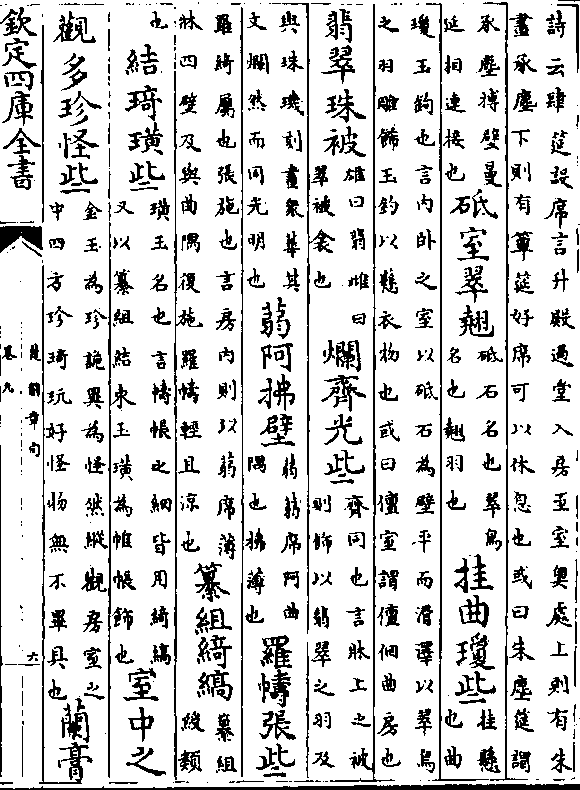 詩云肆筵設席言升殿過堂入房至室奧處上則有朱
畫承塵下則有簟筵好席可以休息也或曰朱塵筵謂
承塵搏壁曼
延相連接也
砥室翠翹
砥石名也翠鳥
名也翹羽也
挂曲瓊些
挂懸
也曲
瓊玉鉤也言内卧之室以砥石為壁平而滑澤以翠鳥
之羽雕飾玉鈎以懸衣物也或曰儃室謂儃佪曲房也
翡翠珠被
雄曰翡雌曰
翠被衾也
爛齊光些
齊同也言牀上之被
則飾以翡翠之羽及
與珠璣刻畫衆華其
文爛然而同光明也
蒻阿拂壁
蒻蒻席阿曲
隅也拂薄也
羅幬張些
羅綺屬也張施也言房内則以蒻席薄
牀四壁及與曲隅復施羅幬輕且涼也
纂組綺縞
纂組
綬類
也
結琦璜些
璜玉名也言幬帳之細皆用綺縞
又以纂組結束玉璜為帷帳飾也
室中之
觀多珍怪些
金玉為珍詭異為怪然縱觀房室之
中四方珍琦玩好怪物無不畢具也
蘭膏
欽定四庫全書
楚辭章句
卷九
六